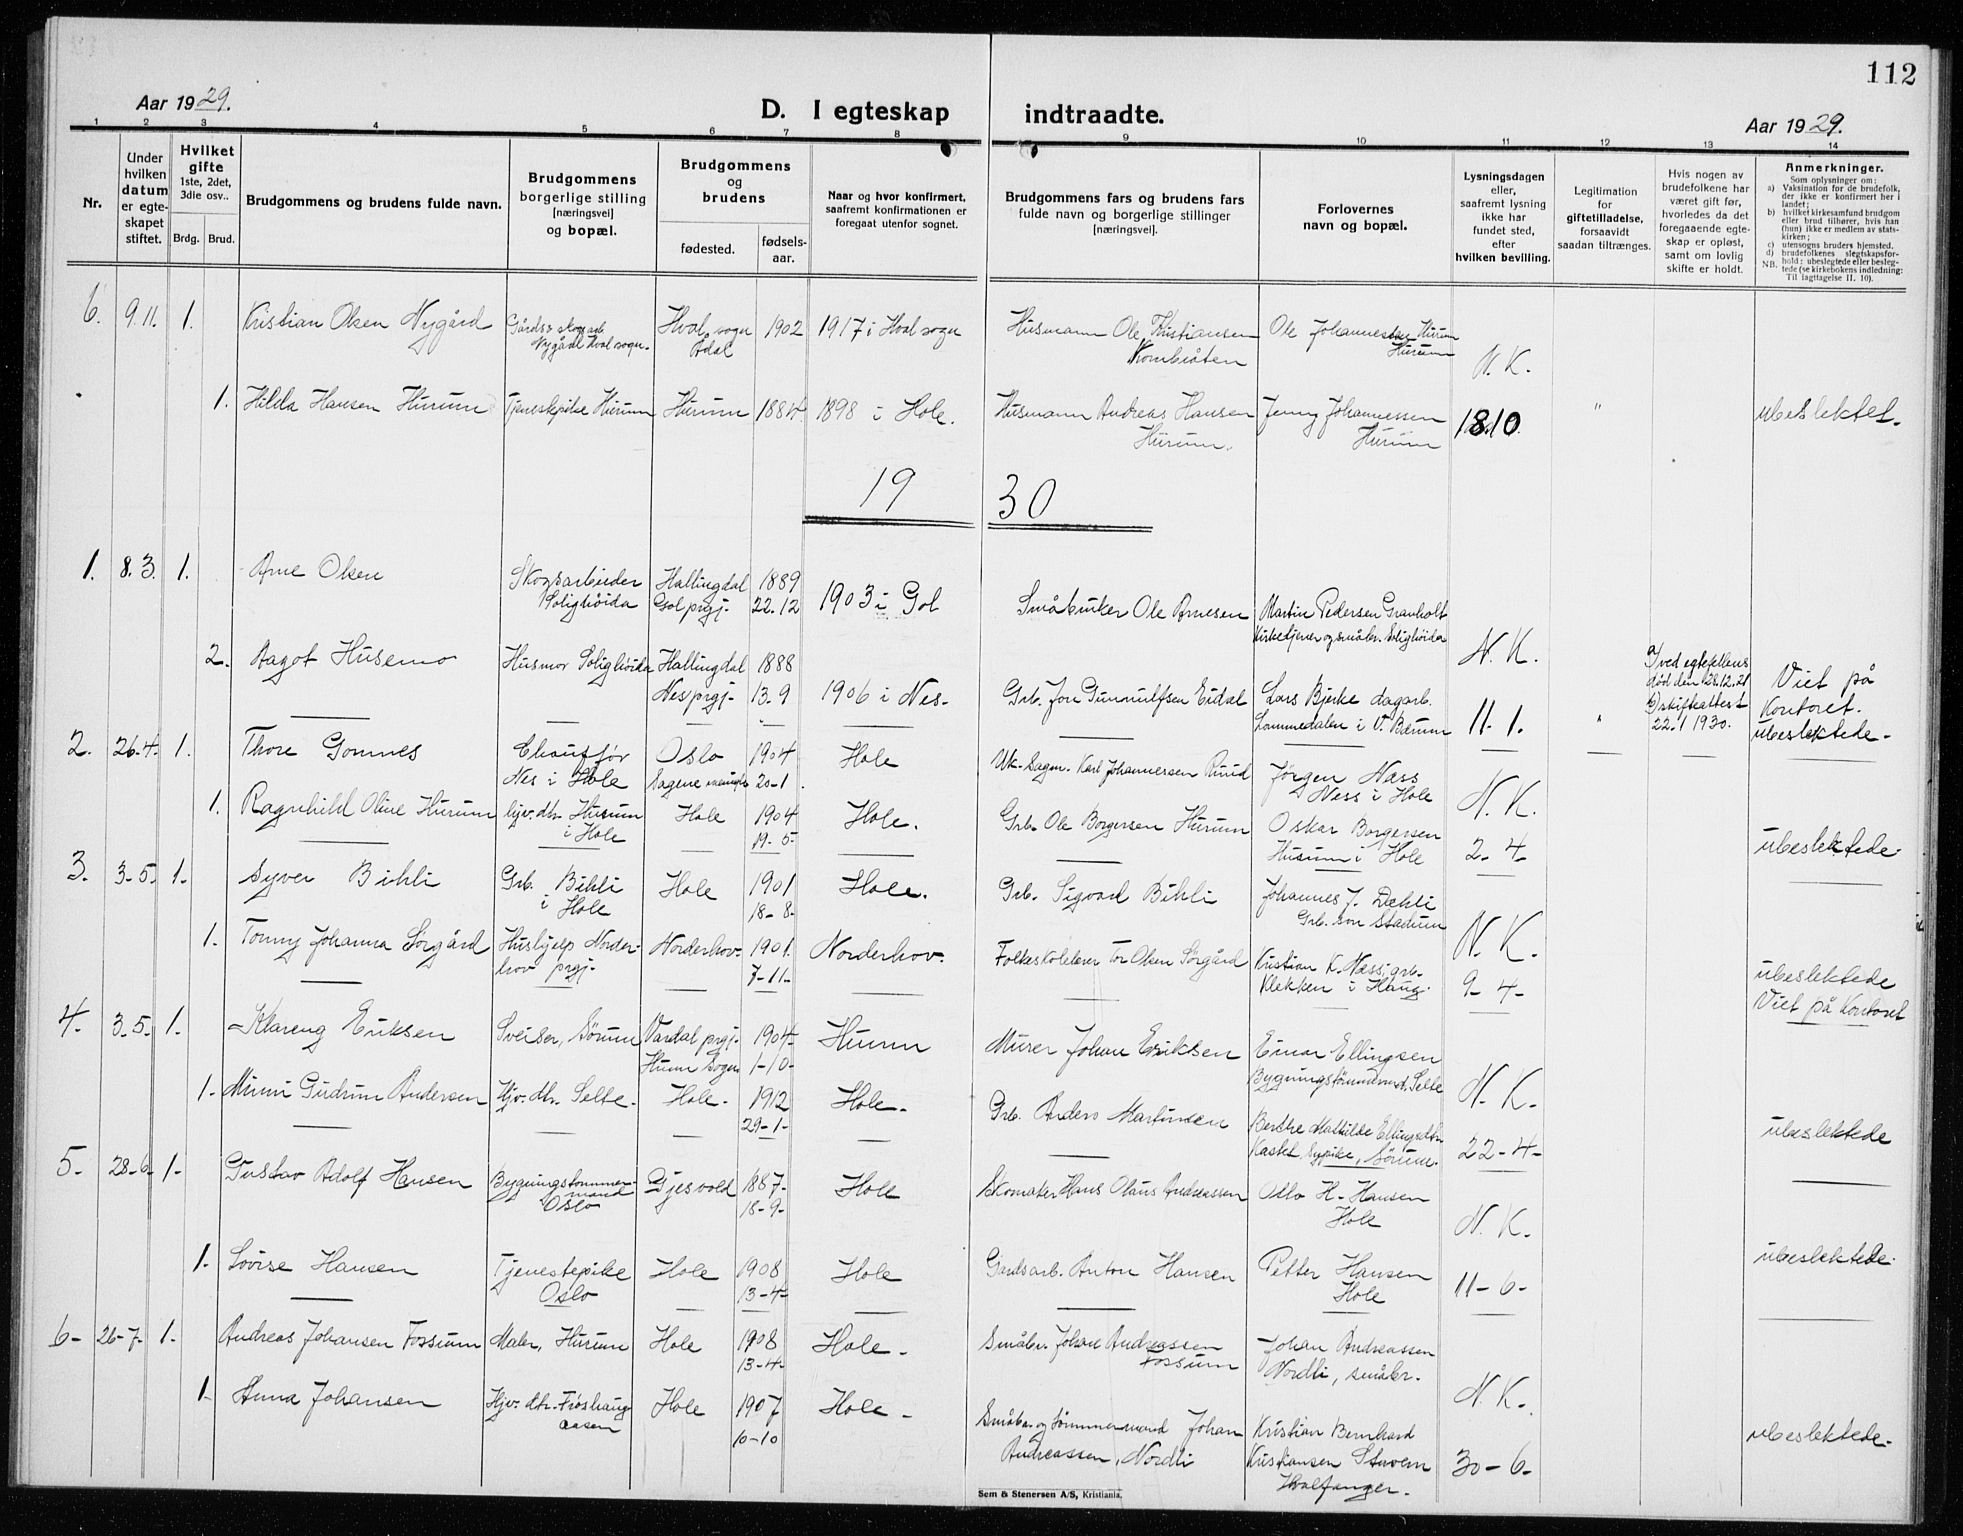 112
Aar 1929.
D. I egteskap indtraadte.
Aar 1929.
1 2 3 4 5 6 7 8 9 10 11 12 13 14
Nr.
Under
hvilken
datum
er egte-
skapet
stiftet.
Hvilket
gifte
1ste, 2det,
3die osv..
Brdg. Brud.
Brudgommens og brudens fulde navn.
Brudgommens
borgerlige stilling
[næringsvei]
og bopæl.
Brudgommens
og
brudens
fødested.
fødsels-
aar.
Naar og hvor konfirmert,
saafremt konfirmationen er
foregaat utenfor sognet.
Brudgommens fars og brudens fars
fulde navn og borgerlige stillinger
[næringsvei].
Forlovernes
navn og bopæl.
Lysningsdagen
eller,
saafremt lysning
ikke har
fundet sted,
efter
hvilken bevilling.
Legitimation
for
giftetilladelse,
forsaavidt
saadan tiltrænges.
Hvis nogen av
brudefolkene har
været gift før,
hvorledes da det
foregaaende egte-
skap er opløst,
samt om lovlig
skifte er holdt.
Anmerkninger.
Som oplysninger om:
a) Vaksination for de brudefolk,
der ikke er konfirmert her i
landet;
b) hvilket kirkesamfund brudgom
eller brud tilhører, hvis han
(hun) ikke er medlem av stats-
kirken;
c) utensogns bruders hjemsted.
d) brudefolkenes slegtskapsfor-
hold: ubeslegtede eller besleg-
NB. tede (se kirkebokens indledning:
Til Iagttagelse II. 10).
6. 9.11. 1. Kristian Olsen Nygård
Gårds & skogsarb.
Nygård Hval sogn.
Hval sogn
Ådal
1902
1917 i Hval sogn
Husmann Ole Kristiansen
Ole Johannessen Hurum
Hurum
N. K.
1. Hilda Hansen Hurum
Tjenestepike Hurum
Hurum
1884.
1898 i Hole.
Husmann Andreas Hansen
Hurum.
Jenny Johannessen
Hurum
18.10.
"
ubeslektet.
19 30
1. 8.3. 1. Arne Olsen
Skogsarbeider
Solighøida
Hallingdal
Gol prgj.
1889
22.12
1903 i Gol
Småbruker Ole Arnesen
Martin Pedersen Granholt
Kirketjener og småbr. Solighøida
N. K.
2. Aagot Husemo
Husmor Solighøida
Hallingdal
Nes prgj.
1888
13.9
1906 i Nes.
Grb. Jon Gunnulfsen Eidal
Lars Bjerke dagarb.
Lommedalen i V. Bærum
11.1.
"
a) ved egtefellens
død den 28.12.21
b) skifteattest
22.1 1930.
Viet på
Kontoret.
ubeslektede.
2. 26.4. 1. Thore Gomnes
Chauffør
Nes i Hole
Oslo
Sagene menigh.
1904
20-1.
Hole
Karl Johannessen Ruud
Jørgen Næss
Næss i Hole
N. K.
1. Ragnhild Oline Hurum
hjv. dtr. Hurum
i Hole
Hole
1904
19-5-
Hole.
Grb. Ole Borgersen Hurum
Oskar Borgersen
Hurum i Hole
2-4-
ubeslektede.
3. 3-5. 1. Syver Bihli
Grb. Bihli
i Hole
Hole
1901
18-8-
Hole.
Grb. Sigvard Bihli
Johannes J. Dæhli
Grb. søn Stadum
N. K.
1. Tonny Johanna Sørgård
Hushjelp Norder-
hov prgj.
Norderhov.
1901.
7-11-
Norderhov.
Folkeskolelærer Tor Olsen Sørgård
Kristian K. Næss, grb.
Klekken i Haug.
9-4-
ubeslektede
Viet på Kontoret
4. 3-5. 1. Klareng Eriksen
Sveiser, Sørum
Vardal prgj.
Hunn Sogn
1904-
1-10-
Hunn
Murer Johan Eriksen
Einar Ellingsen
Bygningstømmermand, Selte
N. K.
1. Minni Gudrun Andersen
Hjv. dtr. Selte.
Hole.
1912
29-1-
Hole.
Grb. Anders Martinsen
Berthe Mathilde Ellingsdtr.
Kastet, sypike, Sørum.
22-4-
ubeslektede
5. 28-6. 1. Gustav Adolf Hansen
Bygningstømmer-
mand
Oslo
Gjesvold
1887-
18-9-
Hole
Skomaker Hans Olaus Andreassen
Otto H. Hansen
Hole
N. K.
1. Lovise Hansen
Tjenestepike
Oslo
Hole
1908
13-4-
Hole
Gårdsarb. Anton Hansen
Petter Hansen
Hole
11-6-
ubeslektede.
6. 26-7. 1. Andreas Johansen Fossum
Maler, Hurum
Hole
1908
13-4-
Hole.
Småbr. Johan Andreassen
Fossum
Johan Andreassen
Nordli, småbr.
N. K.
1. Anna Johansen
Hjv. dtr. Frøshaug-
aasen
Hole
1907
10-10
Hole.
Småbr. og tømmermand Johan
Andreassen, Nordli
Kristian Bernhard
Kristiansen Stavern
Hvalfanger.
30-6-
ubeslektede.
Sem & Stenersen A/S, Kristiania.